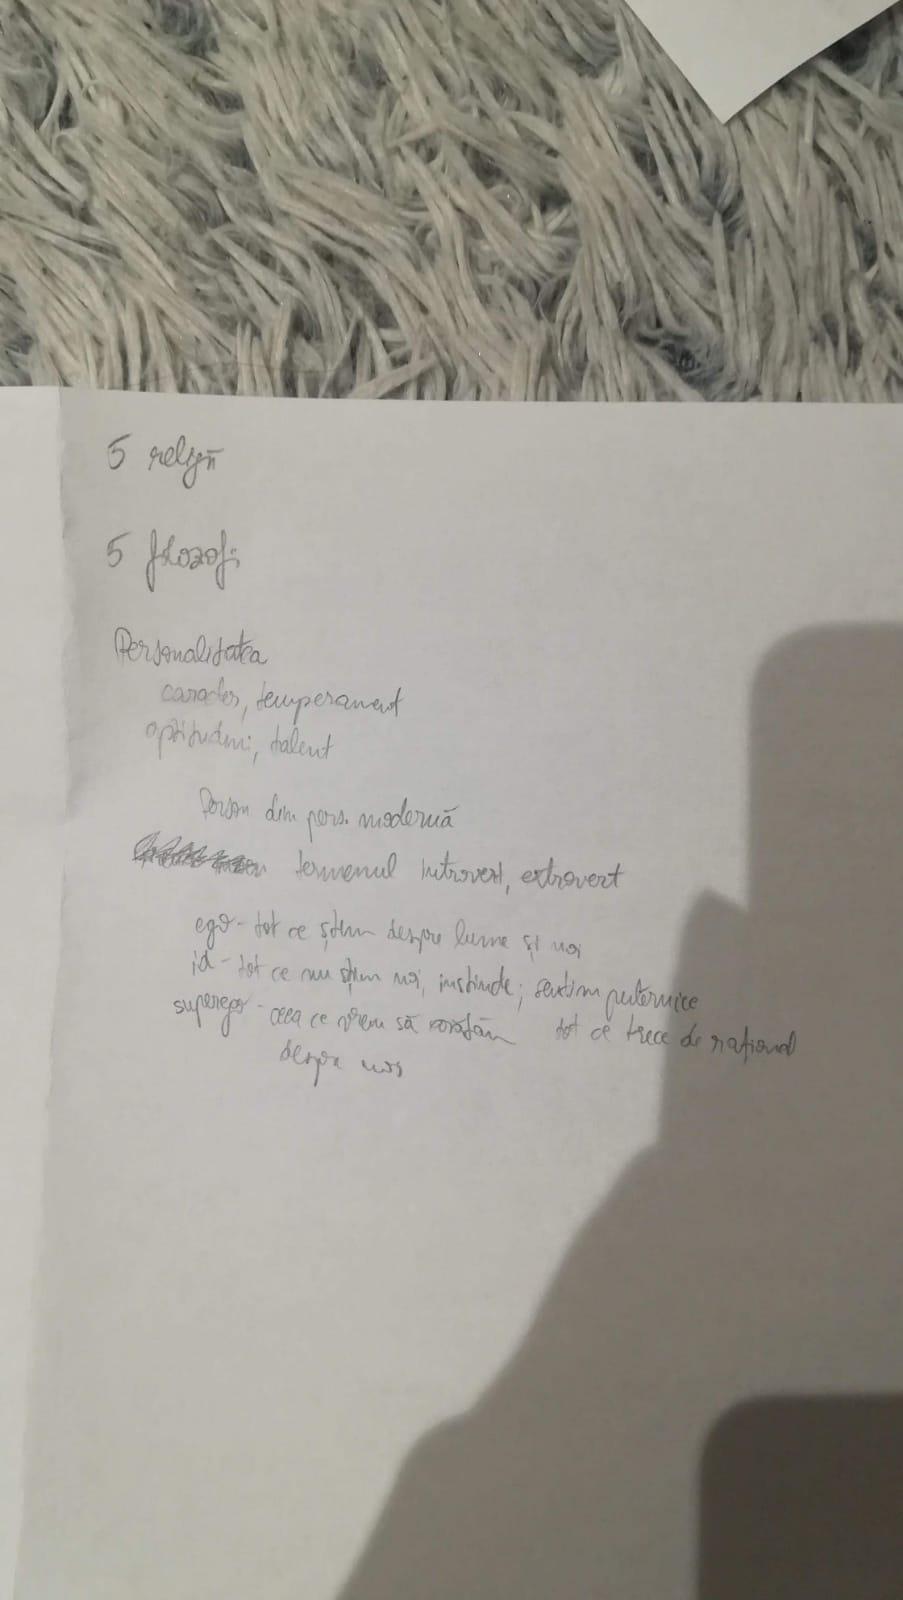 5 religii
5 filozofi
Personalitatea
caracter, temperament
aptitudini, talent
din pers. modernă
termenul introvert, extrovert
ego - tot ce știm despre lume și noi
id - tot ce nu știm noi, instincte; sentim puternice
superego - ceea ce vrem să arătăm tot ce trece de rațional
despre noi